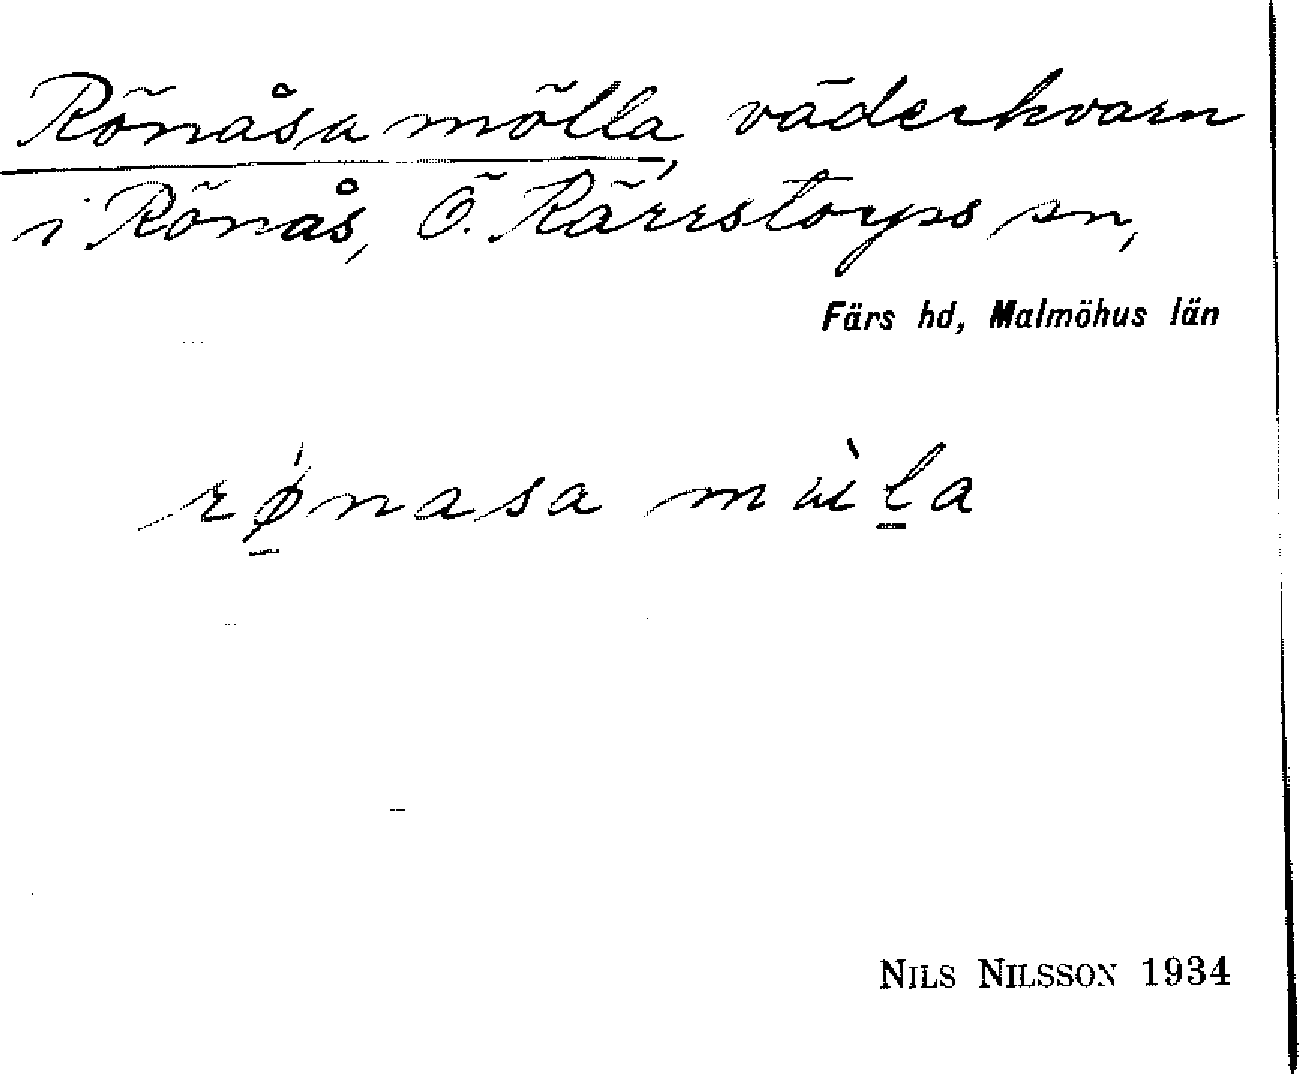 Rönåsa mölla, väderkvarn
i Rönås, Ö. Kärrstorps sn,
Färs hd, Malmöhus län
rǿ̱nasa mɯ̀ḻa
NILS NILSSON 1934